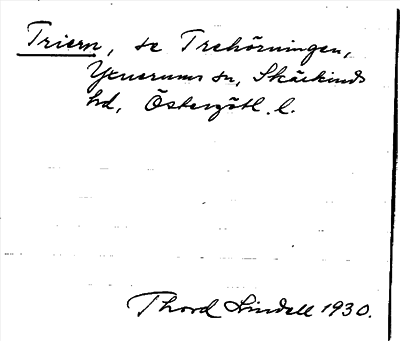 Triern, se Trehörningen,
Yxnerums sn, Skärkinds
hd, Östergötl. l.
Thord Lindell 1930.